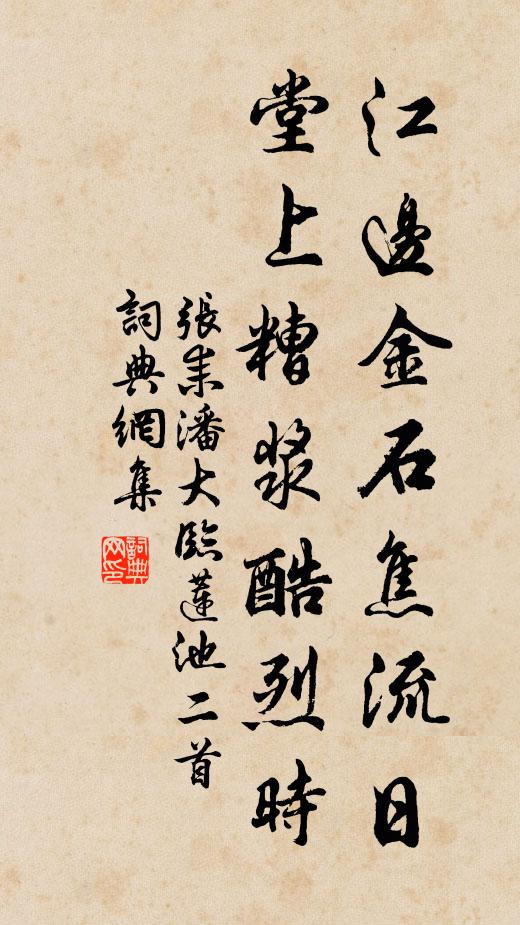 江邊金石焦流日
堂上糟漿酷烈時
張耒潘大臨蓮池二首
詞典網集
詞典网印